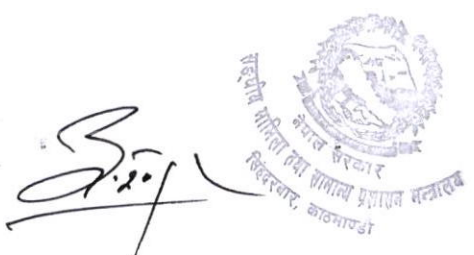 नेपाल सरकार
सङ्घीय मामिला तथा सामान्य प्रशासन मन्त्रालय
सिंहदरबार, काठमाण्डौ